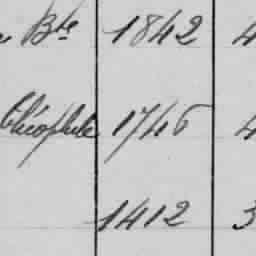 Bte 1842 4
Théophile 1746 4
1412 3